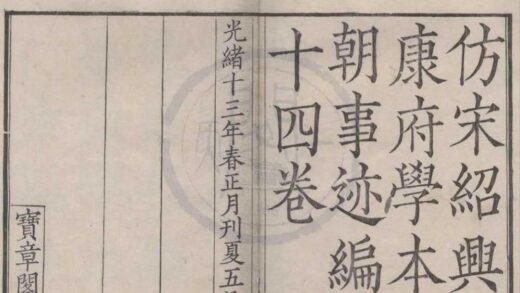 仿宋紹興
康府學本
朝事迹編
十四卷
光緒十三年春正月刊夏五
寶章閣